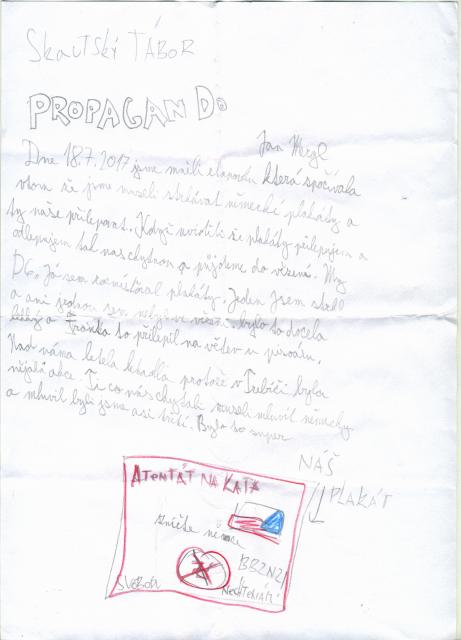 Skautský TÁBOR
PROPAGANDo
Jan
Dne 18.7.2017 jsme měli etapovku která spočívala
vtom že jsme museli strhávat německé plakáty a
ty naše přilepovat. Když uvidili že plakáty přilepujem a
odlepujem tak nas chytnou a půjdeme do vězení. My
D6. Já sem roznášal plakáty. Jeden jsem
a ani jednou sem nebyl ve vězení. bylo to docela
a Franta to přilepil na větev u pisoáru.
Nad náma letěla letadla protože v Třebíči byla
nějaká akce. Ti co nás chytali museli mluvit německy
a mluvil byli jsme asi třetí. Bylo to super
NÁŠ
PLAKÁT
ATENTÁT NA KATA
zničte němce
SVOBODA